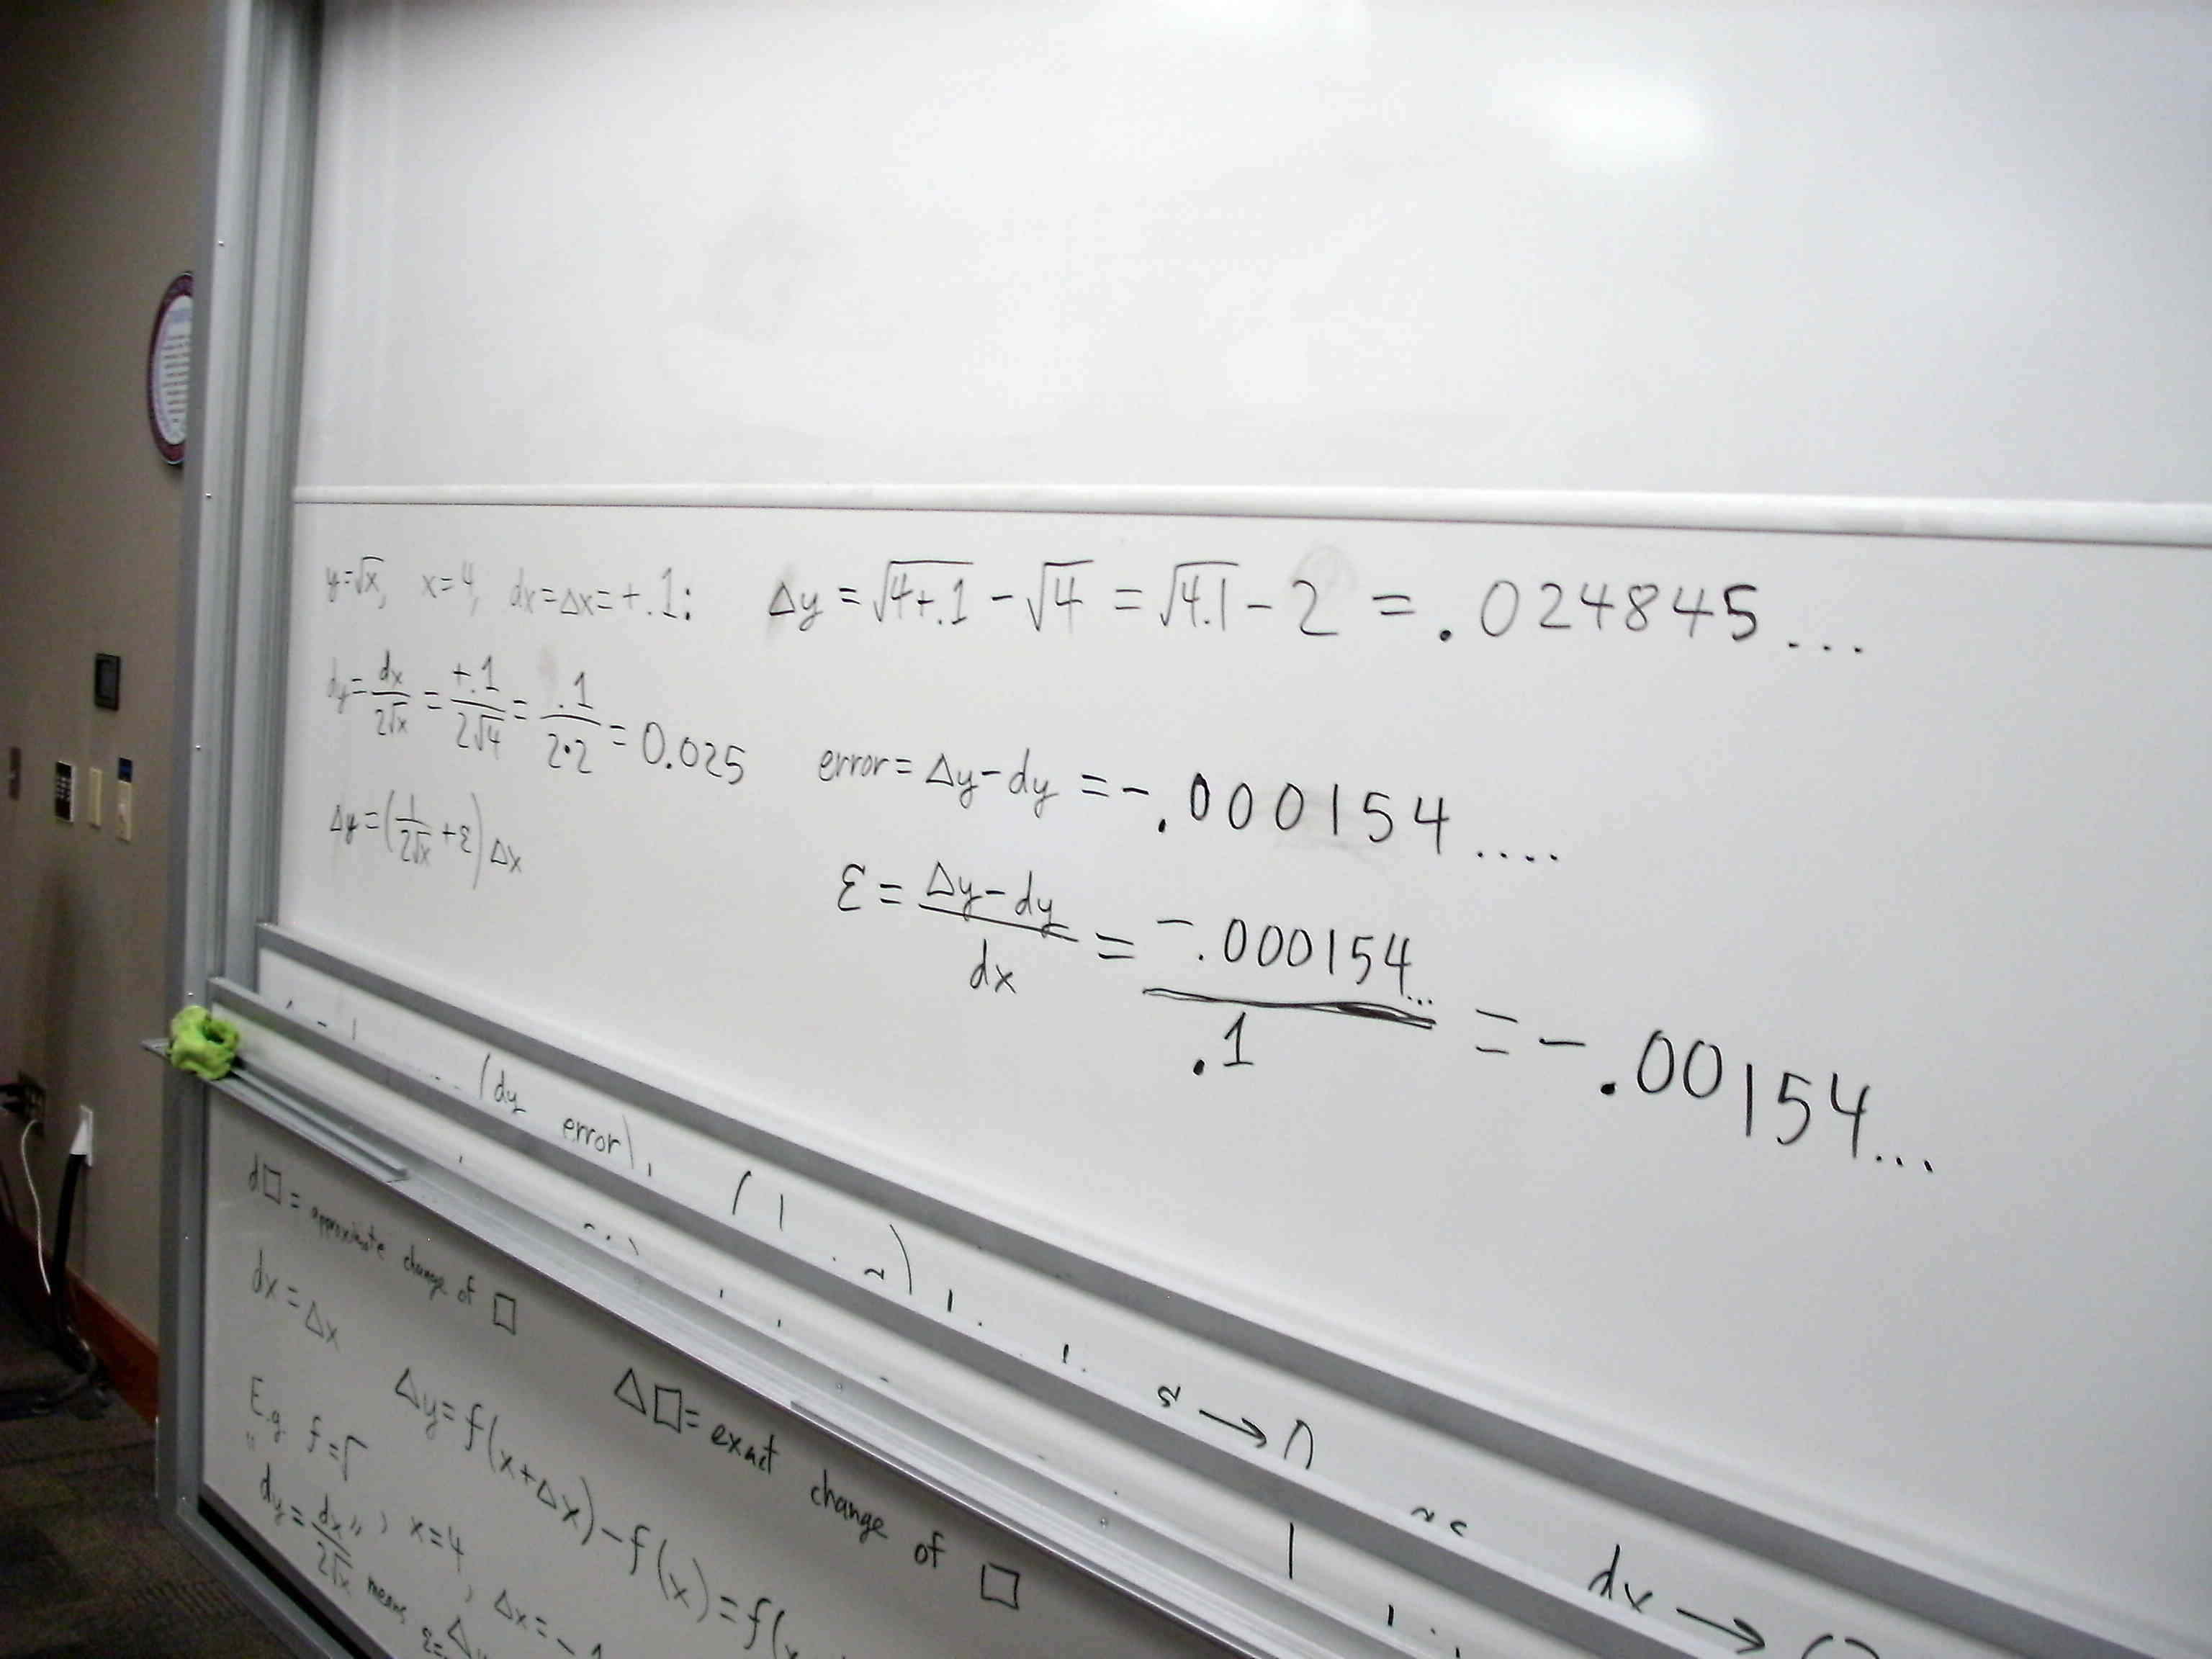 y=√x, x=4, dx=Δx=+.1: Δy = √4+.1 - √4 = √4.1 - 2 = .024845...
dy = dx/2√x = +.1/2√4 = .1/2•2 = 0.025
error = Δy-dy = -.000154....
Δy = (1/2√x + ε) Δx
ε = Δy-dy/dx = -.000154.../.1 = -.00154...
(dy error)
dx →
d□ = approximate change of □ Δ□ = exact change of □
dx = Δx Δy = f(x+Δx)-f(x) = f(
E.g. f=√ , x=4, Δx=-.1
"dy = dx/2√x" means